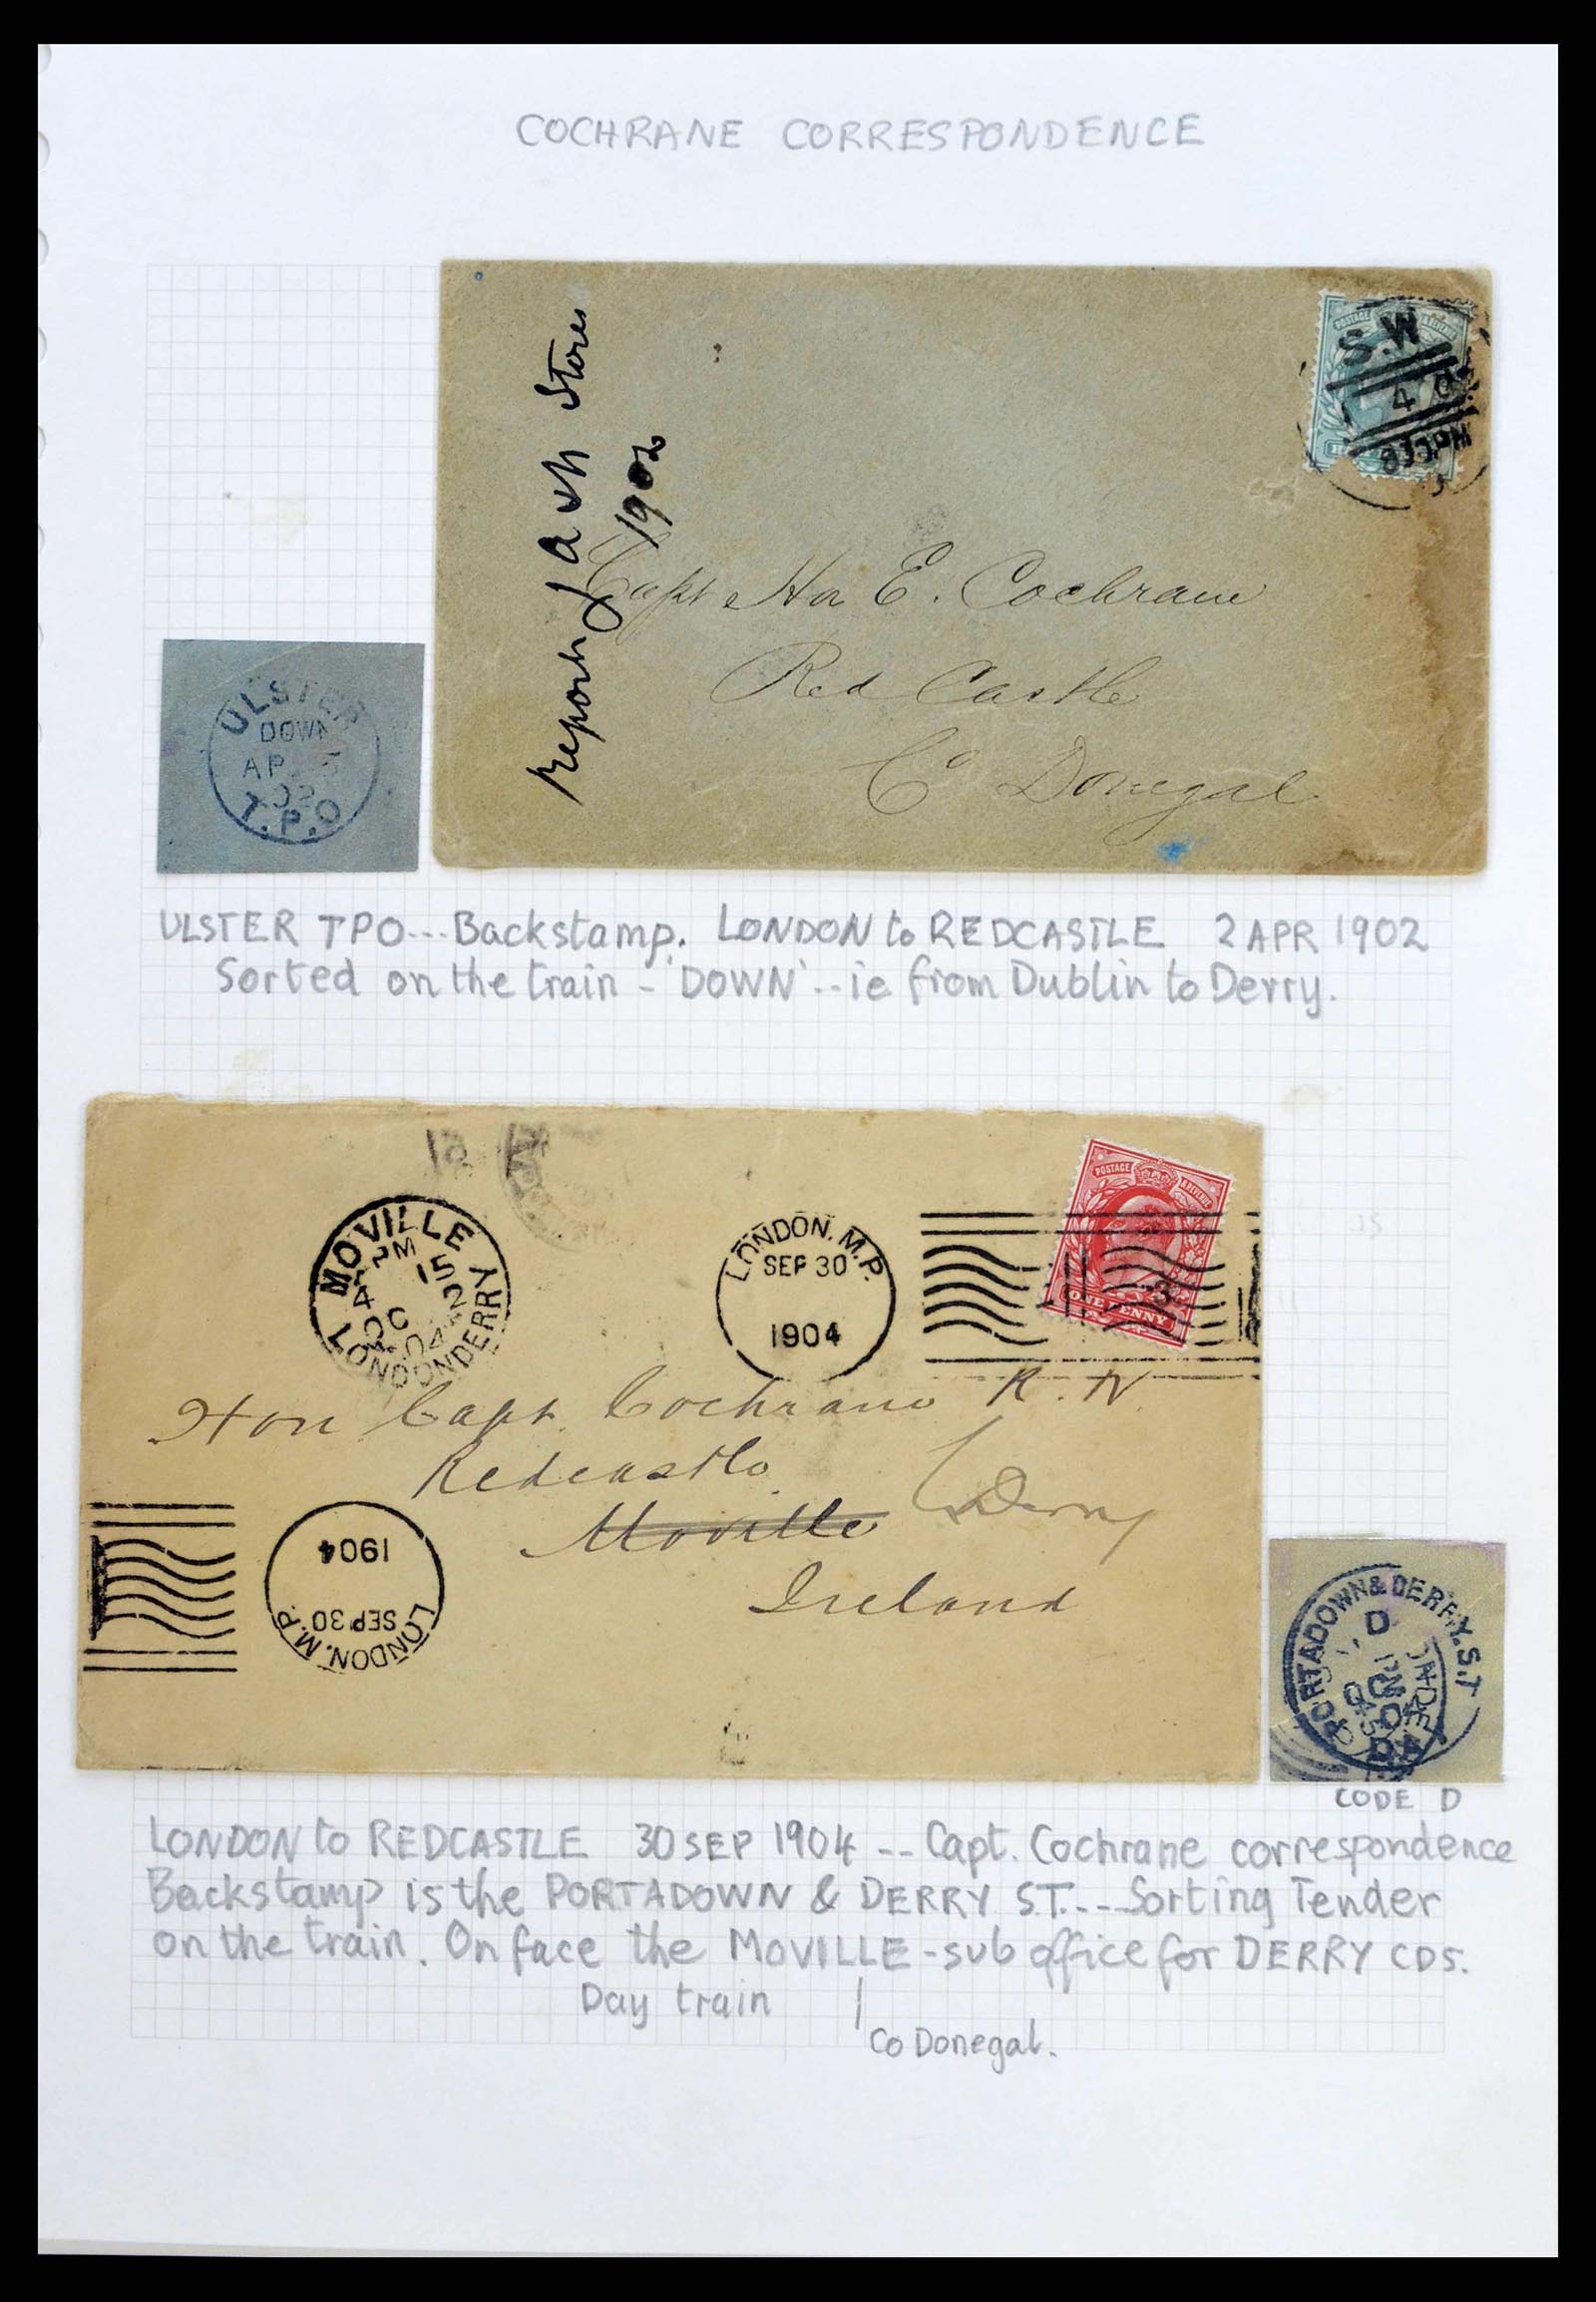 COCHRANE CORRESPONDENCE
POSTAGE REVENUE
S.W
4
Report Stores
1902
Capt Hon E. Cochrane
Red Castle
Co Donegal
ULSTER
DOWN
AP 5
02
T.P.O
ULSTER TPO... Backstamp. LONDON to REDCASTLE 2 APR 1902
Sorted on the train - 'DOWN' .. ie from Dublin to Derry.
MOVILLE
LONDONDERRY
OC 2
04
LONDON. M.P.
SEP 30
1904
POSTAGE REVENUE
ONE PENNY
Hon Capt Cochrane R.N.
Redcastle
Moville Derry
Ireland
LONDON. M.P.
SEP 30
1904
PORTADOWN & DERRY. S.T
D
OC
04
CODE D
LONDON to REDCASTLE 30 SEP 1904 -- Capt. Cochrane correspondence
Backstamp is the PORTADOWN & DERRY S.T. --- Sorting Tender
on the train. On face the MOVILLE - sub office for DERRY CDS.
Day train
Co Donegal.